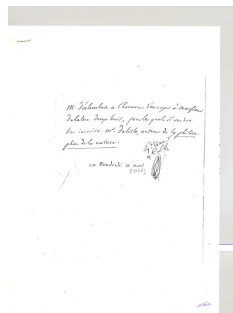 M. d'alembert a l'honneur d'envoyer à Monsieur
Delalen deux louis, pour les quels il voudra
bien inscrire M. Delisle, auteur de la philoso-
phie de la nature.
ce vendredi 11 mai